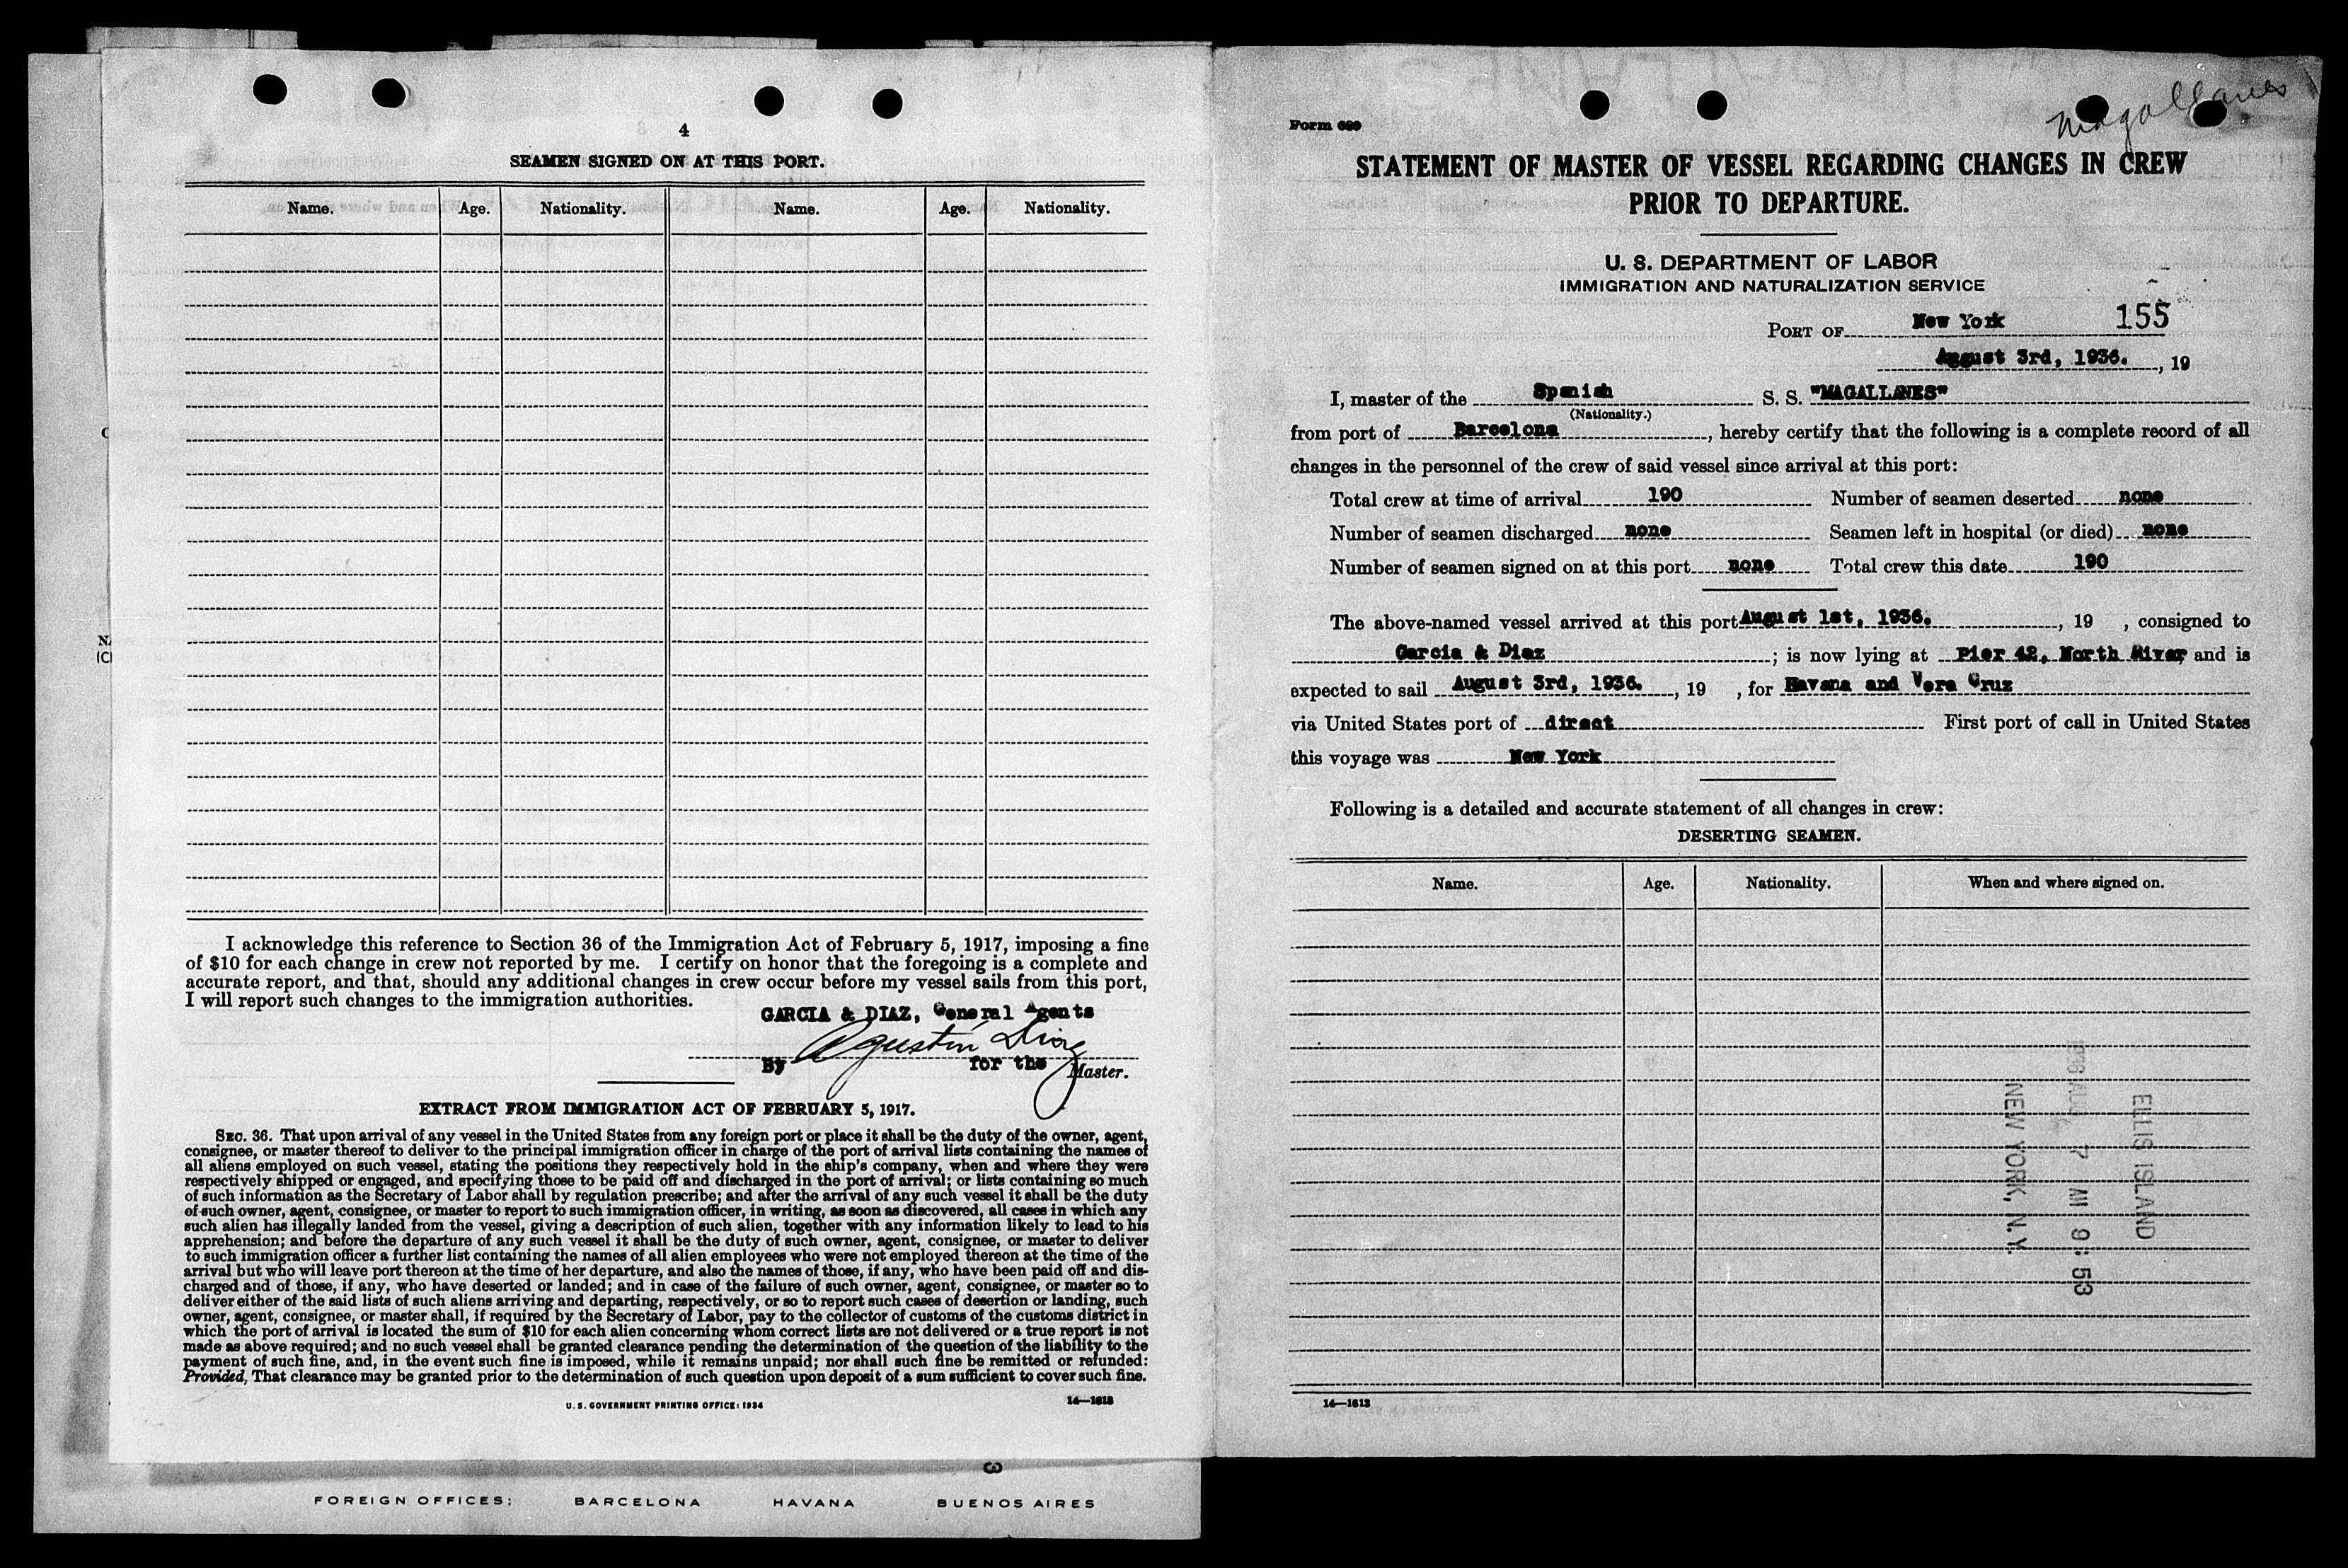 4
SEAMEN SIGNED ON AT THIS PORT.
Name. Age. Nationality. Name. Age. Nationality.
I acknowledge this reference to Section 36 of the Immigration Act of February 5, 1917, imposing a fine
of $10 for each change in crew not reported by me. I certify on honor that the foregoing is a complete and
accurate report, and that, should any additional changes in crew occur before my vessel sails from this port,
I will report such changes to the immigration authorities.
GARCIA & DIAZ, General Agents
Agustín Diaz
By for the Master.
EXTRACT FROM IMMIGRATION ACT OF FEBRUARY 5, 1917.
SEC. 36. That upon arrival of any vessel in the United States from any foreign port or place it shall be the duty of the owner, agent,
consignee, or master thereof to deliver to the principal immigration officer in charge of the port of arrival lists containing the names of
all aliens employed on such vessel, stating the positions they respectively hold in the ship's company, when and where they were
respectively shipped or engaged, and specifying those to be paid off and discharged in the port of arrival; or lists containing so much
of such information as the Secretary of Labor shall by regulation prescribe; and after the arrival of any such vessel it shall be the duty
of such owner, agent, consignee, or master to report to such immigration officer, in writing, as soon as discovered, all cases in which any
such alien has illegally landed from the vessel, giving a description of such alien, together with any information likely to lead to his
apprehension; and before the departure of any such vessel it shall be the duty of such owner, agent, consignee, or master to deliver
to such immigration officer a further list containing the names of all alien employees who were not employed thereon at the time of the
arrival but who will leave port thereon at the time of her departure, and also the names of those, if any, who have been paid off and dis-
charged and of those, if any, who have deserted or landed; and in case of the failure of such owner, agent, consignee, or master so to
deliver either of the said lists of such aliens arriving and departing, respectively, or so to report such cases of desertion or landing, such
owner, agent, consignee, or master shall, if required by the Secretary of Labor, pay to the collector of customs of the customs district in
which the port of arrival is located the sum of $10 for each alien concerning whom correct lists are not delivered or a true report is not
made as above required; and no such vessel shall be granted clearance pending the determination of the question of the liability to the
payment of such fine, and, in the event such fine is imposed, while it remains unpaid; nor shall such fine be remitted or refunded:
Provided, That clearance may be granted prior to the determination of such question upon deposit of a sum sufficient to cover such fine.
U. S. GOVERNMENT PRINTING OFFICE: 1934 14—1613
3
FOREIGN OFFICES: BARCELONA HAVANA BUENOS AIRES
Magallanes
Form 689
STATEMENT OF MASTER OF VESSEL REGARDING CHANGES IN CREW
PRIOR TO DEPARTURE.
U. S. DEPARTMENT OF LABOR
IMMIGRATION AND NATURALIZATION SERVICE
PORT OF New York 155
August 3rd, 1936. , 19
I, master of the Spanish S. S. "MAGALLANES"
(Nationality.)
from port of Barcelona , hereby certify that the following is a complete record of all
changes in the personnel of the crew of said vessel since arrival at this port:
Total crew at time of arrival 190 Number of seamen deserted none
Number of seamen discharged none Seamen left in hospital (or died) none
Number of seamen signed on at this port none Total crew this date 190
The above-named vessel arrived at this port August 1st, 1936. , 19 , consigned to
Garcia & Diaz ; is now lying at Pier 42, North River and is
expected to sail August 3rd, 1936. , 19 , for Havana and Vera Cruz
via United States port of direct First port of call in United States
this voyage was New York
Following is a detailed and accurate statement of all changes in crew:
DESERTING SEAMEN.
Name. Age. Nationality. When and where signed on.
ELLIS ISLAND
1936 AUG 7 AM 9:53
NEW YORK, N.Y.
14—1613